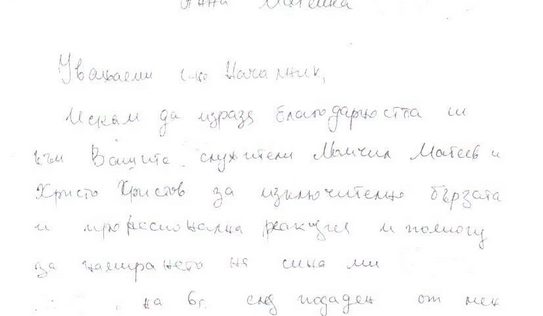 Уважаеми г-не Началник,
Искам да изразя благодарността си
към Вашите служители Момчил Матеев и
Христо Христов за изключително бързата
и професионална реакция и помощ
за намирането на сина ми
на 6г. след подаден от мен